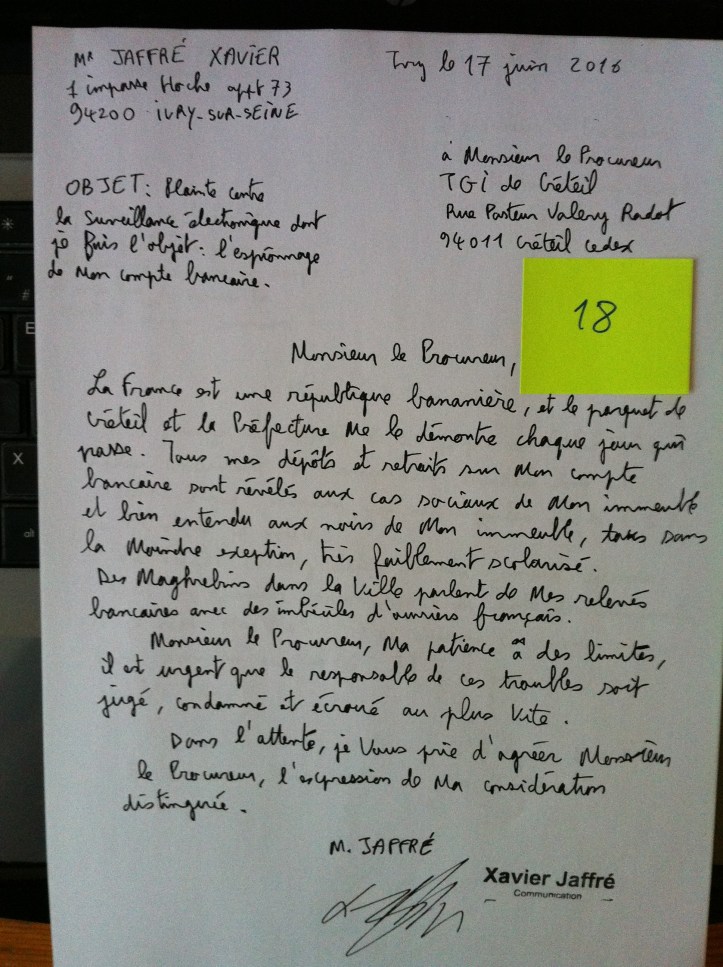 Mr JAFFRÉ XAVIER
1 impasse Hoche appt 73
94200 IVRY-SUR-SEINE
Ivry le 17 juin 2016
à Monsieur le Procureur
TGI de Créteil
Rue Pasteur Valery Radot
94011 Créteil cedex
OBJET: Plainte contre
la surveillance électronique dont
je suis l'objet: l'espionnage
de mon compte bancaire.
18
Monsieur le Procureur,
La France est une république bananière, et le parquet de
Créteil et la Préfecture me le démontre chaque jour qui
passe. Tous mes dépôts et retraits sur mon compte
bancaire sont révélés aux cas sociaux de mon immeuble
et bien entendu aux noirs de mon immeuble, tous sans
la moindre exeption, très faiblement scolarisé.
Des Maghrebins dans la ville parlent de mes relevés
bancaires avec des imbéciles d'ouvriers français.
Monsieur le Procureur, ma patience a des limites,
il est urgent que le responsable de ces troubles soit
jugé, condamné et écroué au plus vite.
Dans l'attente, je vous prie d'agréer Monsieur
le Procureur, l'expression de ma considération
distinguée.
M. JAFFRÉ
Xavier Jaffré
Communication